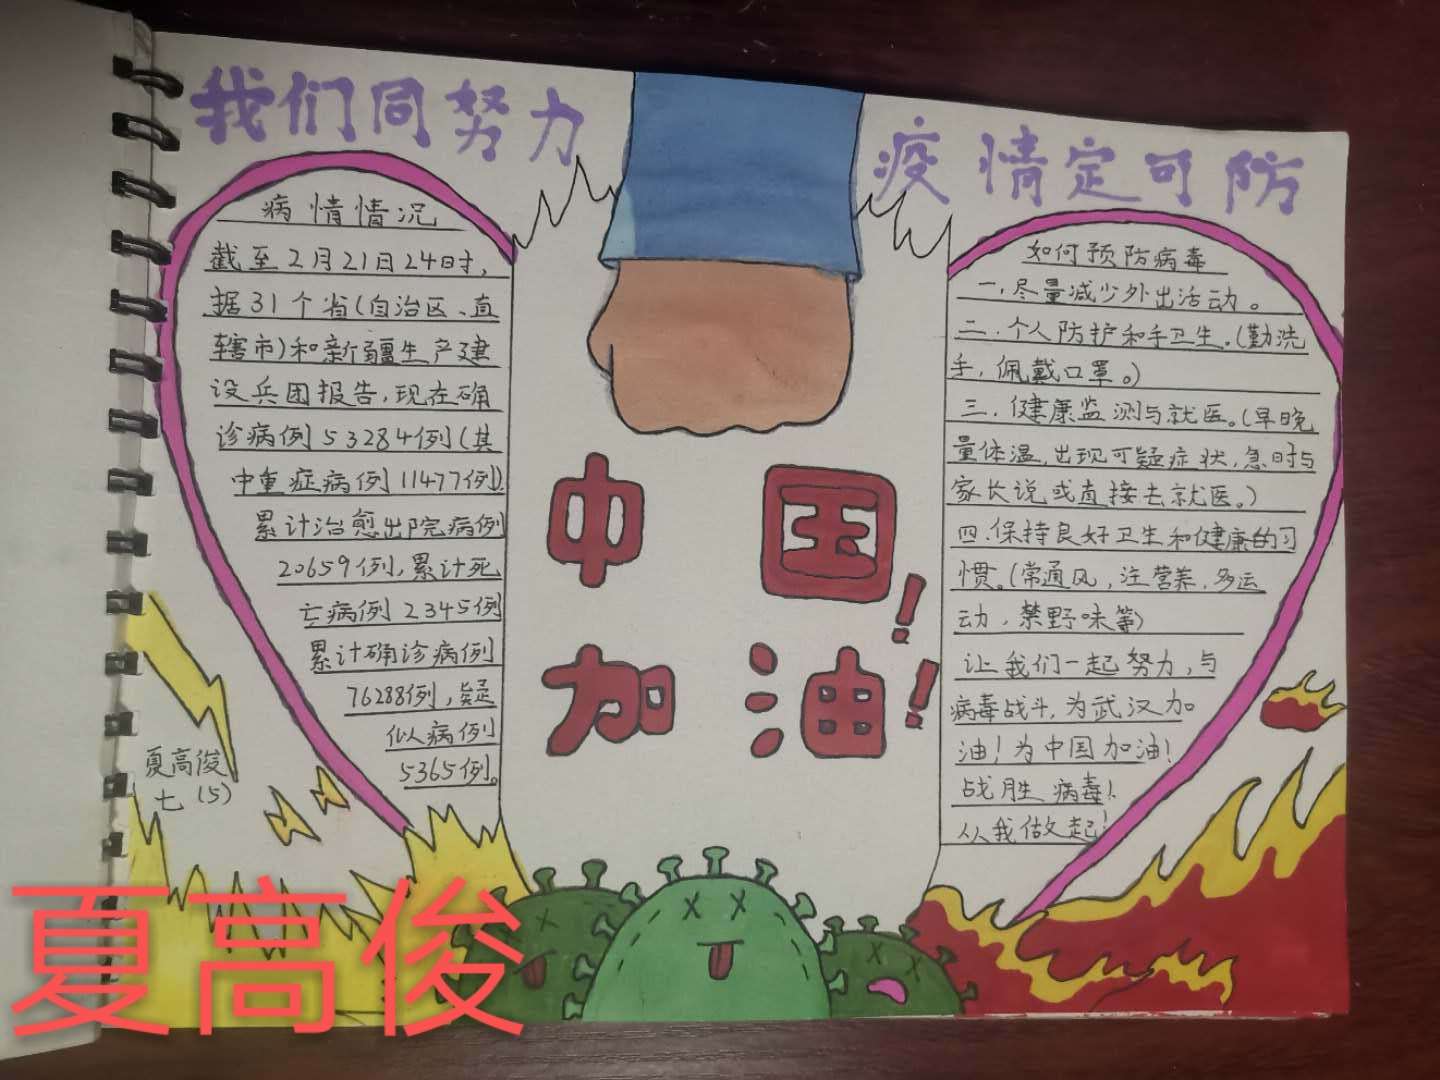 我们同努力
疫情定可防
病情情况
截至2月21日24时，
据31个省（自治区、直
辖市）和新疆生产建
设兵团报告，现在确
诊病例53284例（其
中重症病例11477例）。
累计治愈出院病例
20659例，累计死
亡病例2345例
累计确诊病例
76288例，疑
似病例
5365例。
中国！
加油！
如何预防病毒
一，尽量减少外出活动。
二．个人防护和手卫生。（勤洗
手，佩戴口罩。）
三．健康监测与就医。（早晚
量体温，出现可疑症状，急时与
家长说或直接去就医。）
四．保持良好卫生和健康的习
惯。（常通风，注营养，多运
动，禁野味等）
让我们一起努力，与
病毒战斗，为武汉加
油！为中国加油！
战胜病毒！
从我做起！
夏高俊
七（5）
夏高俊